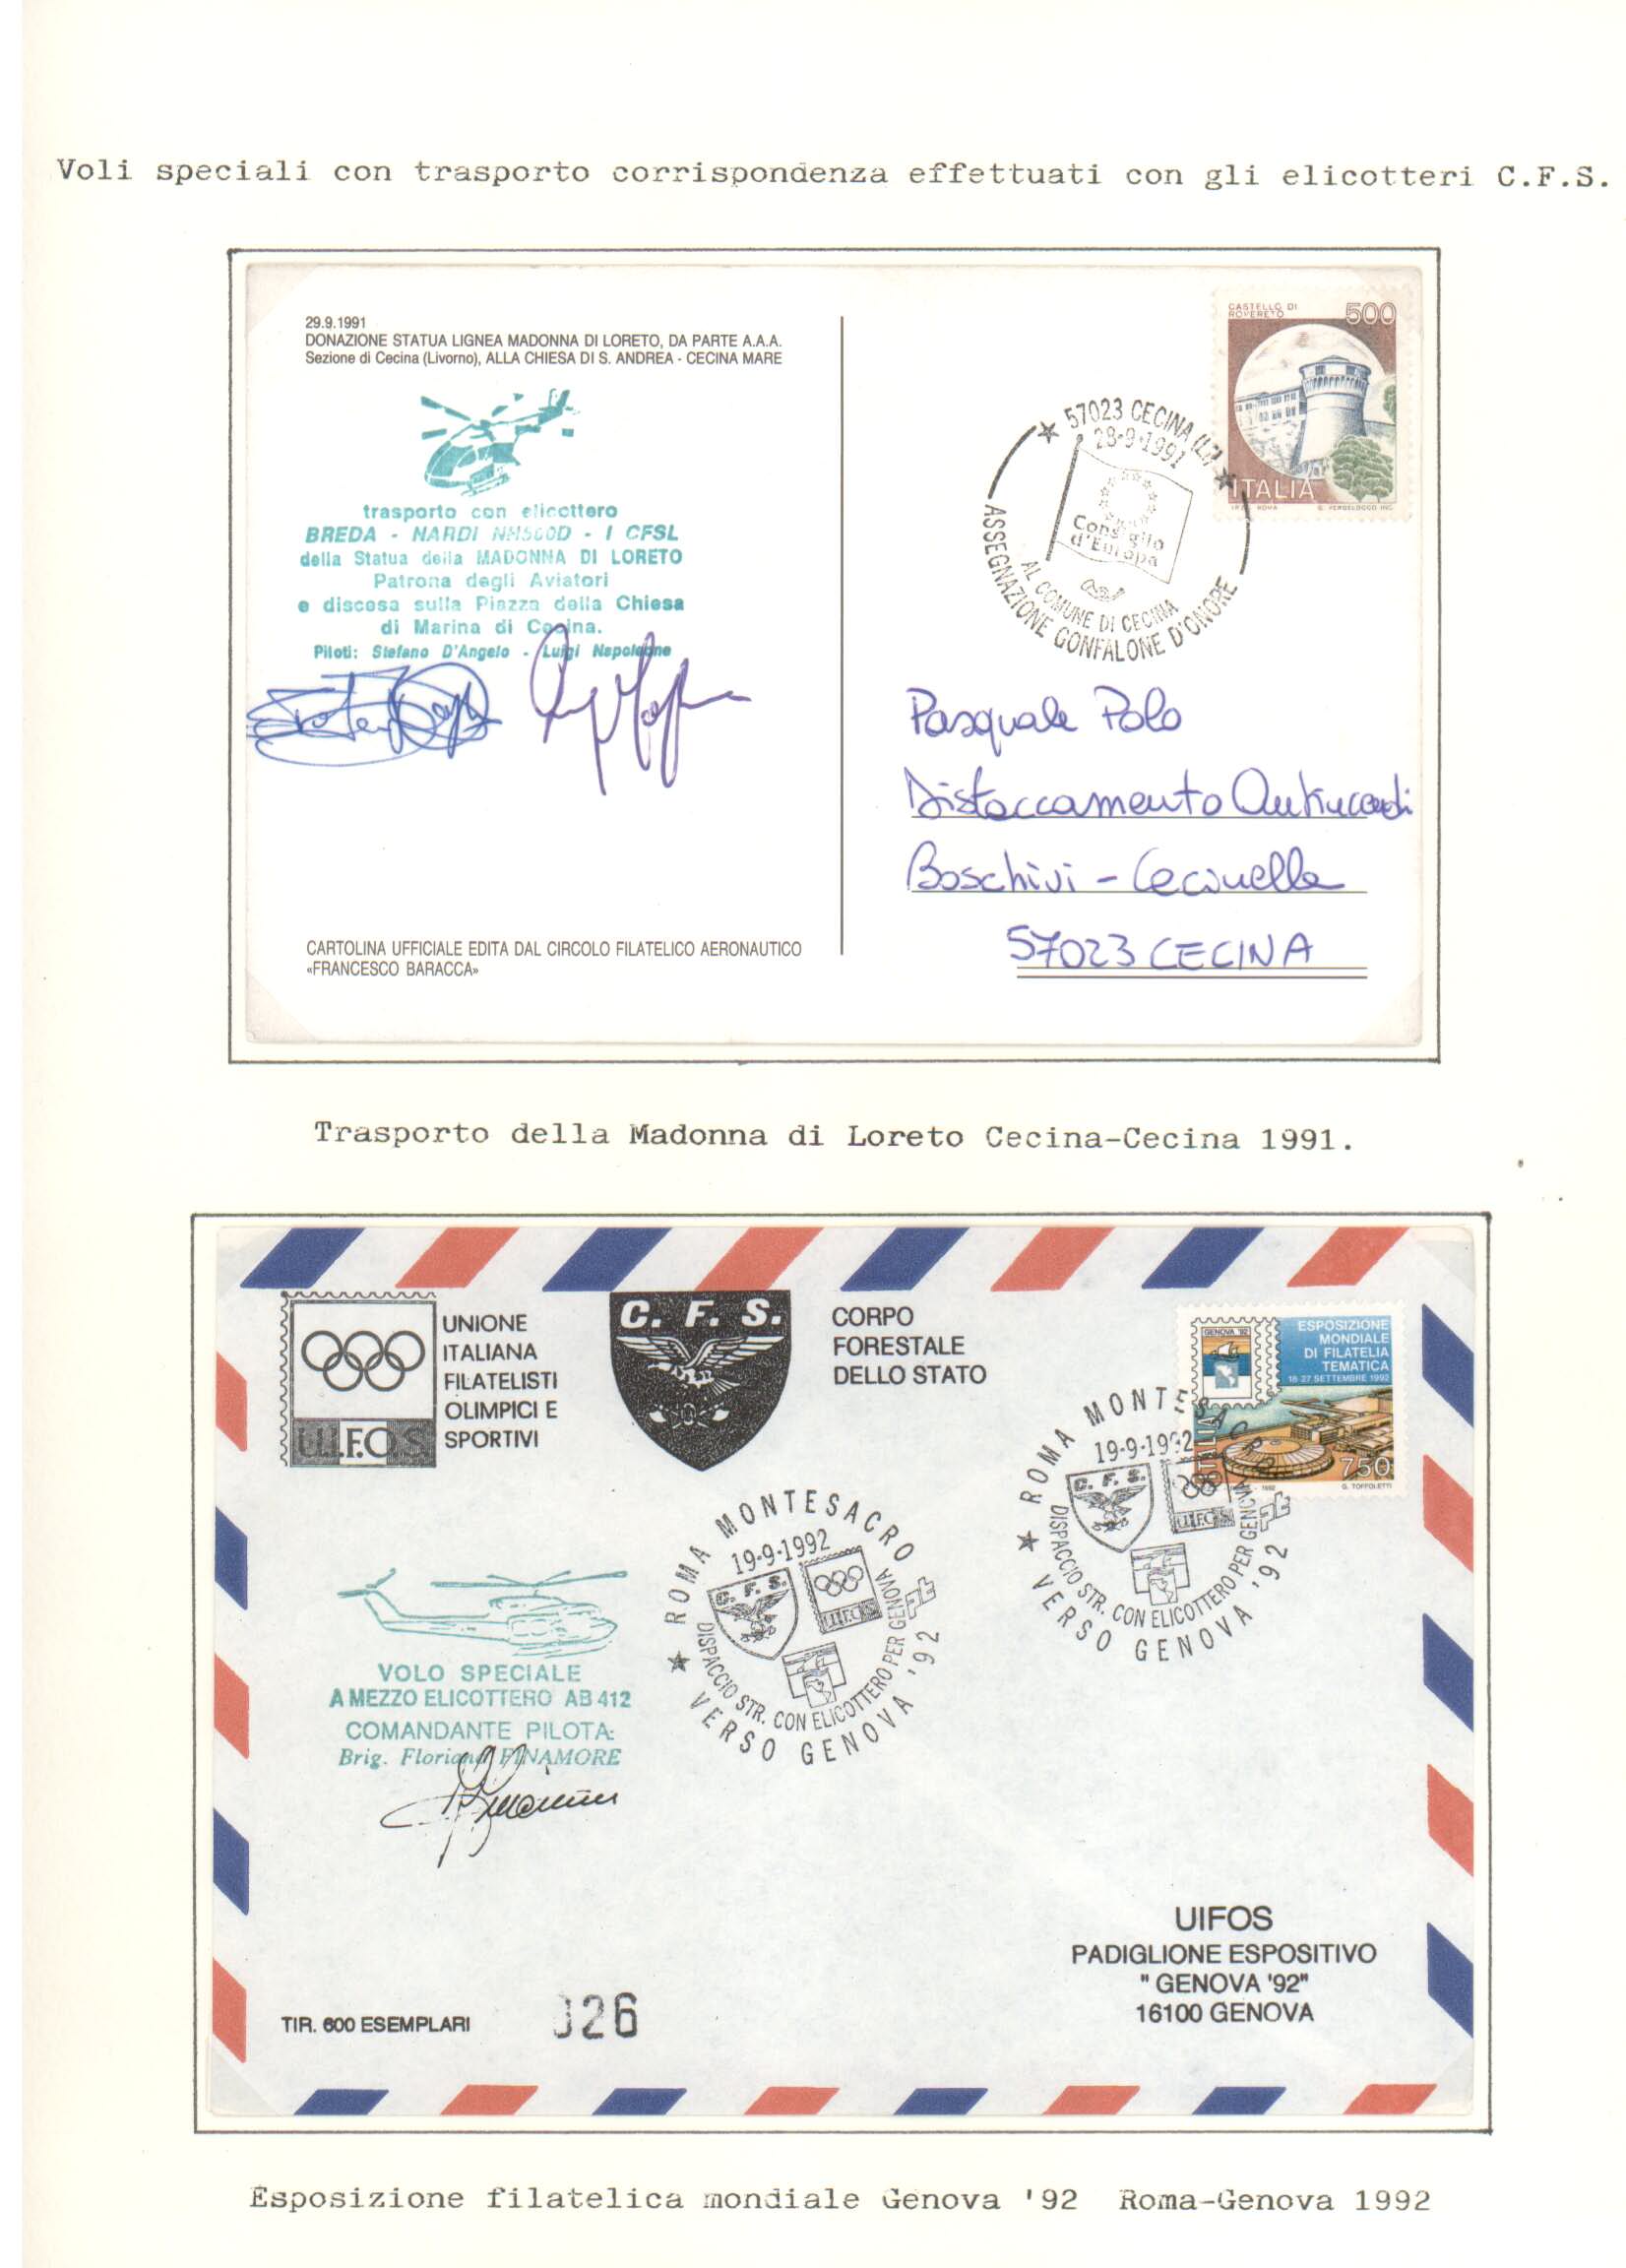 Voli speciali con trasporto corrispondenza effettuati con gli elicotteri C.F.S.
29.9.1991
DONAZIONE STATUA LIGNEA MADONNA DI LORETO, DA PARTE A.A.A.
Sezione di Cecina (Livorno), ALLA CHIESA DI S. ANDREA - CECINA MARE
trasporto con elicottero
BREDA - NARDI NH500D - I CFSL
della Statua della MADONNA DI LORETO
Patrona degli Aviatori
e discesa sulla Piazza della Chiesa
di Marina di Cecina.
Piloti: Stefano D'Angelo - Luigi Napoleone
CARTOLINA UFFICIALE EDITA DAL CIRCOLO FILATELICO AERONAUTICO
«FRANCESCO BARACCA»
CASTELLO DI
ROVERETO
500
ITALIA
57023 CECINA (LI)
28-9-1991
Consiglio
d'Europa
AL COMUNE DI CECINA
ASSEGNAZIONE GONFALONE D'ONORE
Pasquale Polo
Distaccamento Antincendi
Boschivi - Cecinella
57023 CECINA
Trasporto della Madonna di Loreto Cecina-Cecina 1991.
U.I.F.O.S.
UNIONE
ITALIANA
FILATELISTI
OLIMPICI E
SPORTIVI
C. F. S.
CORPO
FORESTALE
DELLO STATO
GENOVA '92
ESPOSIZIONE
MONDIALE
DI FILATELIA
TEMATICA
18-27 SETTEMBRE 1992
ITALIA
750
G. TOFFOLETTI
ROMA MONTESACRO
19-9-1992
C. F. S.
U.I.F.O.S.
DISPACCIO STR. CON ELICOTTERO PER GENOVA
VERSO GENOVA '92
ROMA MONTESACRO
19-9-1992
C. F. S.
U.I.F.O.S.
DISPACCIO STR. CON ELICOTTERO PER GENOVA
VERSO GENOVA '92
VOLO SPECIALE
A MEZZO ELICOTTERO AB 412
COMANDANTE PILOTA:
Brig. Floriano FINAMORE
UIFOS
PADIGLIONE ESPOSITIVO
" GENOVA '92"
16100 GENOVA
TIR. 600 ESEMPLARI
026
Esposizione filatelica mondiale Genova '92 Roma-Genova 1992